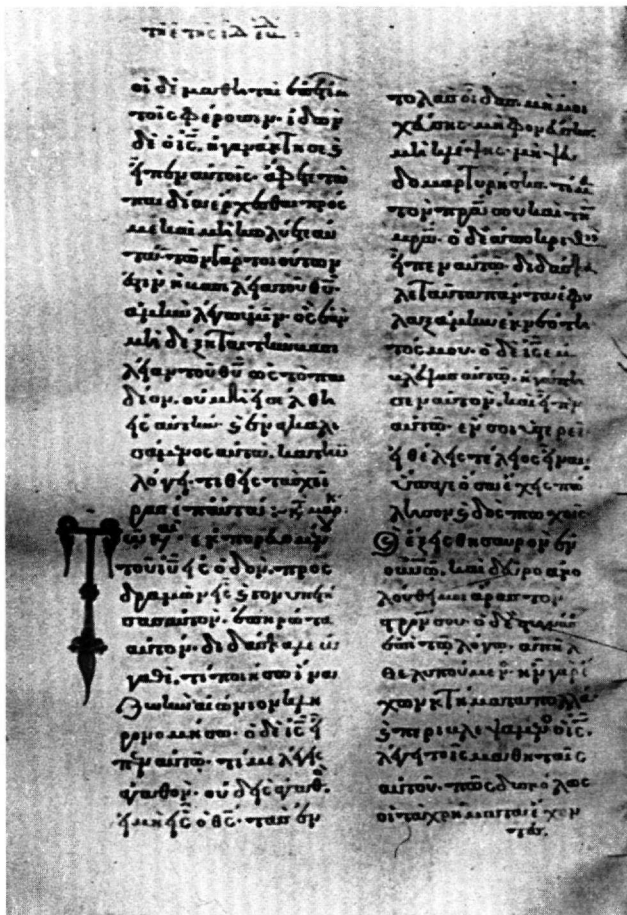 οἱ δὲ μαθηταὶ ἐπετίμων
τοῖς φέρουσιν· ἰδὼν
δὲ ὁ ι̅ς̅. ἠγανάκτησε ϗ
εἶπεν αὐτοῖς· ἄφετε τὰ
παιδία ἔρχεσθαι πρός
με καὶ μὴ κωλύετε αὐ
τά· τῶν γὰρ τοιούτων
ἐστὶν ἡ βασιλεία τοῦ θ̅υ̅.
ἀμὴν λέγω ὑμῖν· ὃς ἐὰν
μὴ δέξηται τὴν βασι
λείαν τοῦ θ̅υ̅ ὡς τὸ παι
δίον. οὐ μὴ εἰσέλθη
εἰς αὐτήν· ϗ ἐναγκαλι
σάμενος αὐτά. κατηυ
λόγει τιθεὶς τὰς χεῖ
ρας ἐπ αὐτά:
ἐκπορευομένου
τοῦ ι̅υ̅ εἰς ὁδόν. προσ
δραμὼν εἷς ϗ γονυπετή
σας αὐτόν. ἐπηρώτα
αὐτόν· διδάσκαλε ἀ
γαθέ. τί ποιήσω ἵνα
ζωὴν αἰώνιον κλη
ρονομήσω· ὁ δὲ ι̅ς̅ εἶ
πεν αὐτῶ· τί με λέγεις
ἀγαθόν· οὐδεὶς ἀγαθὸς
εἰ μὴ εἷς ὁ θ̅ς̅· τὰς ἐν
τολὰς οἶδας· μὴ μοι
χεύσης· μὴ φονεύσης.
μὴ κλέψης· μὴ ψευ
δομαρτυρήσης. τίμα
τὸν π̅ρ̅α̅ σου καὶ τὴν
μ̅ρ̅α̅· ὁ δὲ ἀποκριθεὶς
εἶπεν αὐτῶ· διδάσκα
λε ταῦτα πάντα ἐφυ
λαξάμην ἐκ νεότη
τός μου· ὁ δὲ ι̅ς̅ ἐμ
βλέψας αὐτῶ. ἠγάπη
σεν αὐτόν. καὶ εἶπεν
αὐτῶ· ἕν σοι ὑστερεῖ·
εἰ θέλεις τέλειος εἶναι
ὕπαγε ὅσα ἔχεις πώ
λησον ϗ δὸς πτωχοῖς
ϗ ἕξεις θησαυρὸν ἐν
ο̅υ̅ν̅ω̅. καὶ δεῦρο ἀκο
λούθει μοι ἄρας τὸν
σ̅τ̅ρ̅ν̅ σου· ὁ δὲ στυγνάσας
ἐπὶ τῶ λόγω. ἀπῆλ
θε λυπούμενος· ἦν γὰρ ἔ
χων κτήματα πολλά·
ϗ περιβλεψάμενος ὁ ι̅ς̅.
λέγει τοῖς μαθηταῖς
αὐτοῦ· πῶς δυσκόλως
οἱ τὰ χρήματα ἔχον
τες